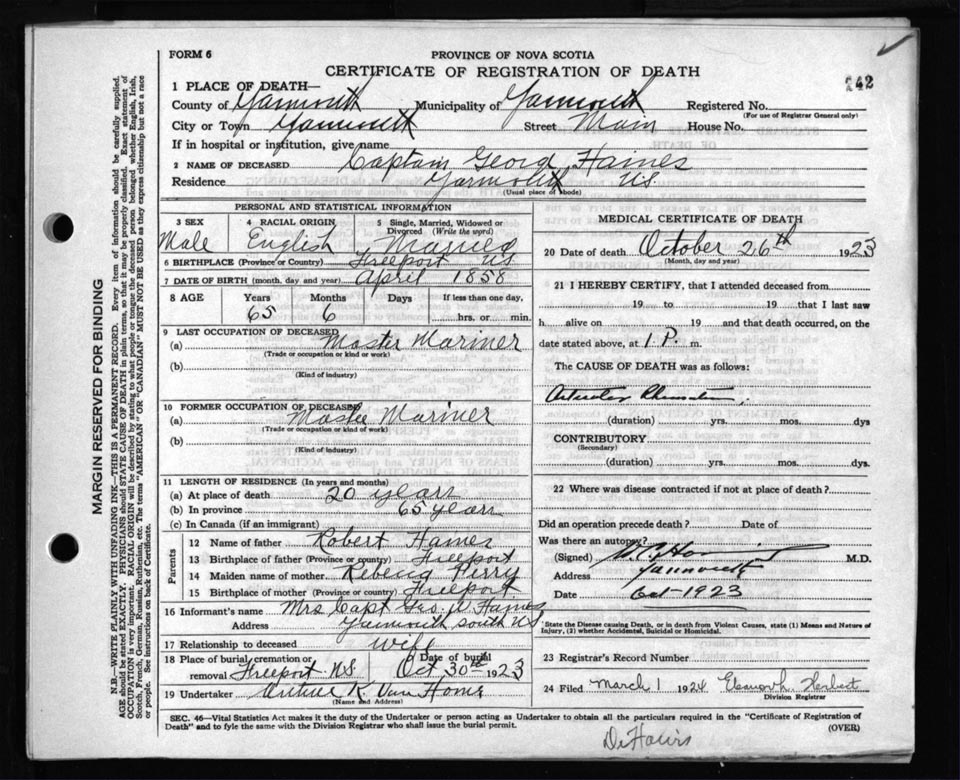 FORM 6
PROVINCE OF NOVA SCOTIA
CERTIFICATE OF REGISTRATION OF DEATH
242
1 PLACE OF DEATH—
County of Yarmouth Municipality of Yarmouth Registered No.
(For use of Registrar General only)
City or Town Yarmouth Street Main House No.
If in hospital or institution, give name
2 NAME OF DECEASED Captain Georg Haines
Residence Yarmouth N.S.
(Usual place of abode)
PERSONAL AND STATISTICAL INFORMATION
3 SEX Male
4 RACIAL ORIGIN English
5 Single, Married, Widowed or Divorced (Write the word) Married
6 BIRTHPLACE (Province or Country) Freeport N.S.
7 DATE OF BIRTH (month, day and year) April 1858
8 AGE Years Months Days If less than one day,
65 6 hrs. or min.
9 LAST OCCUPATION OF DECEASED
(a) Master Mariner
(Trade or occupation or kind or work)
(b)
(Kind of industry)
10 FORMER OCCUPATION OF DECEASED
(a) Master Mariner
(Trade or occupation or kind of work)
(b)
(Kind of industry)
11 LENGTH OF RESIDENCE (In years and months)
(a) At place of death 20 years
(b) In province 65 years
(c) In Canada (if an immigrant)
Parents
12 Name of father Robert Haines
13 Birthplace of father (Province or country) Freeport
14 Maiden name of mother Rebecca Perry
15 Birthplace of mother (Province or country) Freeport
16 Informant's name Mrs. Capt Geo. W Haines
Address Yarmouth South N.S
17 Relationship to deceased wife
18 Place of burial, cremation or removal Freeport N.S. Date of burial Oct 30th 1923
19 Undertaker K. Van Horne
(Name and Address)
MEDICAL CERTIFICATE OF DEATH
20 Date of death October 26th 1923
(Month, day and year)
21 I HEREBY CERTIFY, that I attended deceased from
19 to 19 that I last saw
h alive on 19 and that death occurred, on
date stated above, at 1 P. m.
The CAUSE OF DEATH was as follows:
Articular Rheumatism.
(duration) yrs. mos. dys
CONTRIBUTORY
(Secondary)
(duration) yrs. mos. dys.
22 Where was disease contracted if not at place of death?
Did an operation precede death? Date of
Was there an autopsy?
(Signed) M.D.
Address Yarmouth
Date Oct-1923
State the Disease causing Death, or in death from Violent Causes, state (1) Means and Nature of Injury, (2) whether Accidental, Suicidal or Homicidal.
23 Registrar's Record Number
24 Filed March 1 1924 Herbert
Division Registrar
SEC. 46—Vital Statistics Act makes it the duty of the Undertaker or person acting as Undertaker to obtain all the particulars required in the "Certificate of Registration of
Death" and to fyle the same with the Division Registrar who shall issue the burial permit. (OVER)
MARGIN RESERVED FOR BINDING
N.B.—WRITE PLAINLY WITH UNFADING INK—THIS IS A PERMANENT RECORD. Every item of information should be carefully supplied.
AGE should be stated EXACTLY. PHYSICIANS should STATE CAUSE OF DEATH in plain terms, so that it may be properly classified. Exact statement of
OCCUPATION is very important. RACIAL ORIGIN will be described by stating to what people or tongue the deceased person belonged whether English, Irish,
Scotch, French, German, Russian, Ruthenian, etc. The terms "AMERICAN" OR "CANADIAN" MUST NOT BE USED as they express citizenship but not a race
or people. See instructions on back of Certificate.